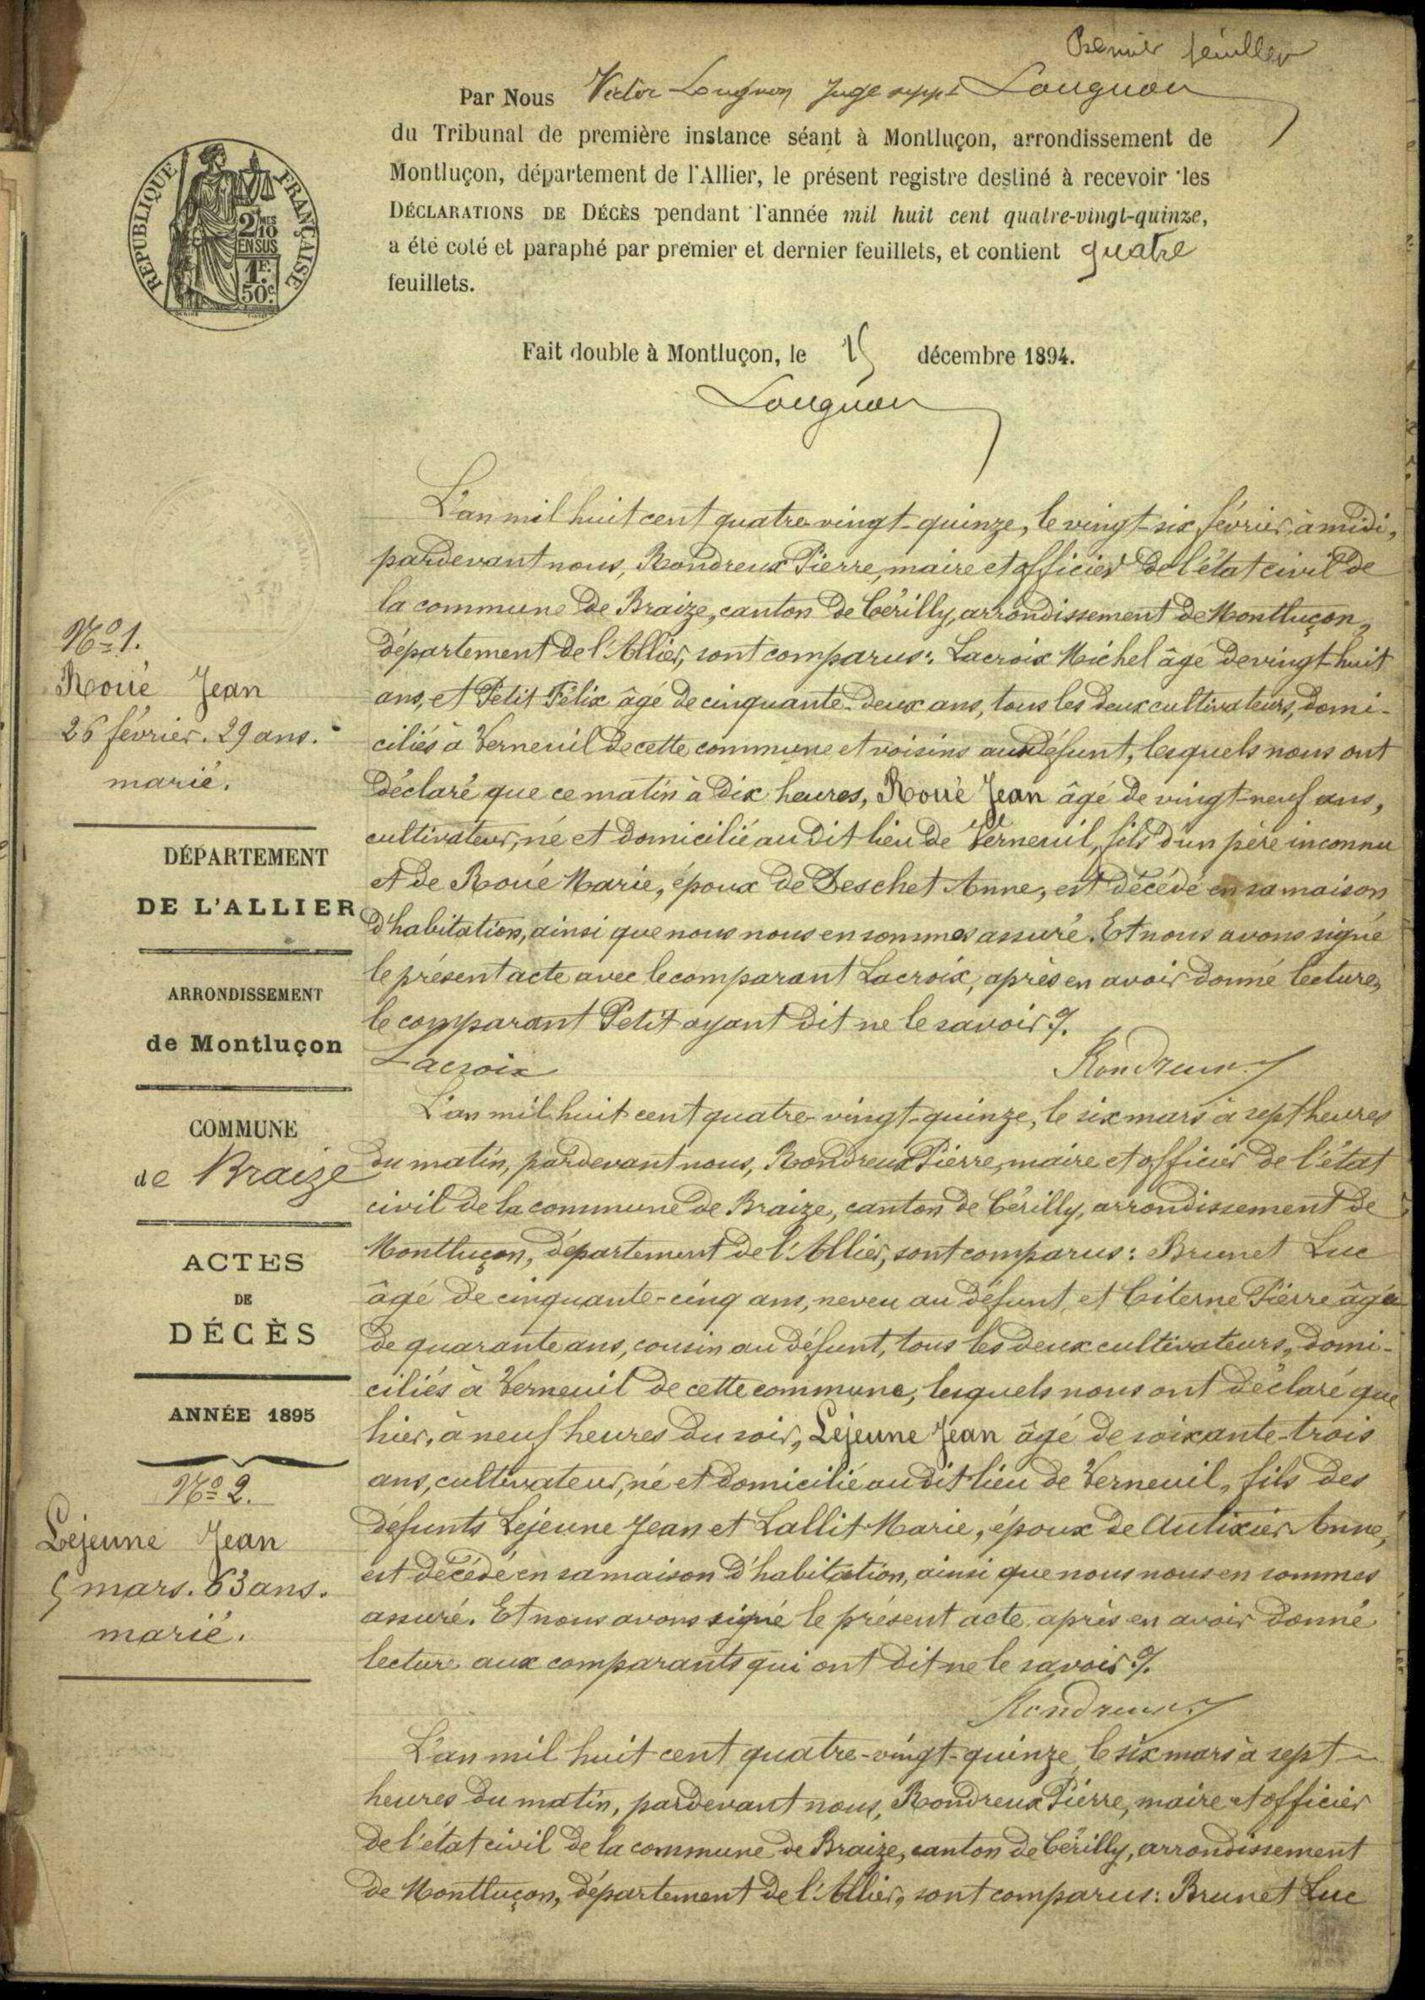 Premier feuillet
Par Nous Victor Lougnon Juge suppt Lougnon
du Tribunal de première instance séant à Montluçon, arrondissement de
Montluçon, département de l'Allier, le présent registre destiné à recevoir les
DÉCLARATIONS DE DÉCÈS pendant l'année mil huit cent quatre-vingt-quinze,
a été coté et paraphé par premier et dernier feuillets, et contient quatre
feuillets.
RÉPUBLIQUE FRANÇAISE
2/10 MES
EN SUS
1 F.
50 c.
Fait double à Montluçon, le 15 décembre 1894.
Lougnon
L'an mil huit cent quatre-vingt-quinze, le vingt-six février, à midi,
pardevant nous, Rondreux Pierre, maire et officier de l'état civil de
la commune de Braize, canton de Cérilly, arrondissement de Montluçon,
département de l'Allier, sont comparus: Lacroix Michel âgé de vingt-huit
ans, et Petit Félix âgé de cinquante-deux ans, tous les deux cultivateurs, domi-
ciliés à Verneuil de cette commune et voisins au défunt, lesquels nous ont
déclaré que ce matin à dix heures, Roué Jean âgé de vingt-neuf ans,
cultivateur, né et domicilié au dit lieu de Verneuil, fils d'un père inconnu
et de Roué Marie, époux de Deschet Anne, est décédé en sa maison
d'habitation, ainsi que nous nous en sommes assuré. Et nous avons signé
le présent acte avec le comparant Lacroix, après en avoir donné lecture,
le comparant Petit ayant dit ne le savoir ./.
Lacroix Rondreux
No 1.
Roué Jean
26 février. 29 ans.
marié.
DÉPARTEMENT
DE L'ALLIER
ARRONDISSEMENT
de Montluçon
COMMUNE
de Braize
ACTES
DE
DÉCÈS
ANNÉE 1895
L'an mil huit cent quatre-vingt-quinze, le six mars à sept heures
du matin, pardevant nous, Rondreux Pierre, maire et officier de l'état
civil de la commune de Braize, canton de Cérilly, arrondissement de
Montluçon, département de l'Allier, sont comparus: Brunet Luc
âgé de cinquante-cinq ans, neveu au défunt, et Citerne Pierre âgé
de quarante ans, cousin au défunt, tous les deux cultivateurs, domi-
ciliés à Verneuil de cette commune, lesquels nous ont déclaré que
hier, à neuf heures du soir, Lejeune Jean âgé de soixante-trois
ans, cultivateur, né et domicilié au dit lieu de Verneuil, fils des
défunts Lejeune Jean et Lallit Marie, époux de Aulixier Anne,
est décédé en sa maison d'habitation, ainsi que nous nous en sommes
assuré. Et nous avons signé le présent acte après en avoir donné
lecture aux comparants qui ont dit ne le savoir ./.
Rondreux
No 2.
Lejeune Jean
5 mars. 63 ans.
marié.
L'an mil huit cent quatre-vingt-quinze, le six mars à sept
heures du matin, pardevant nous, Rondreux Pierre, maire et officier
de l'état civil de la commune de Braize, canton de Cérilly, arrondissement
de Montluçon, département de l'Allier, sont comparus: Brunet Luc